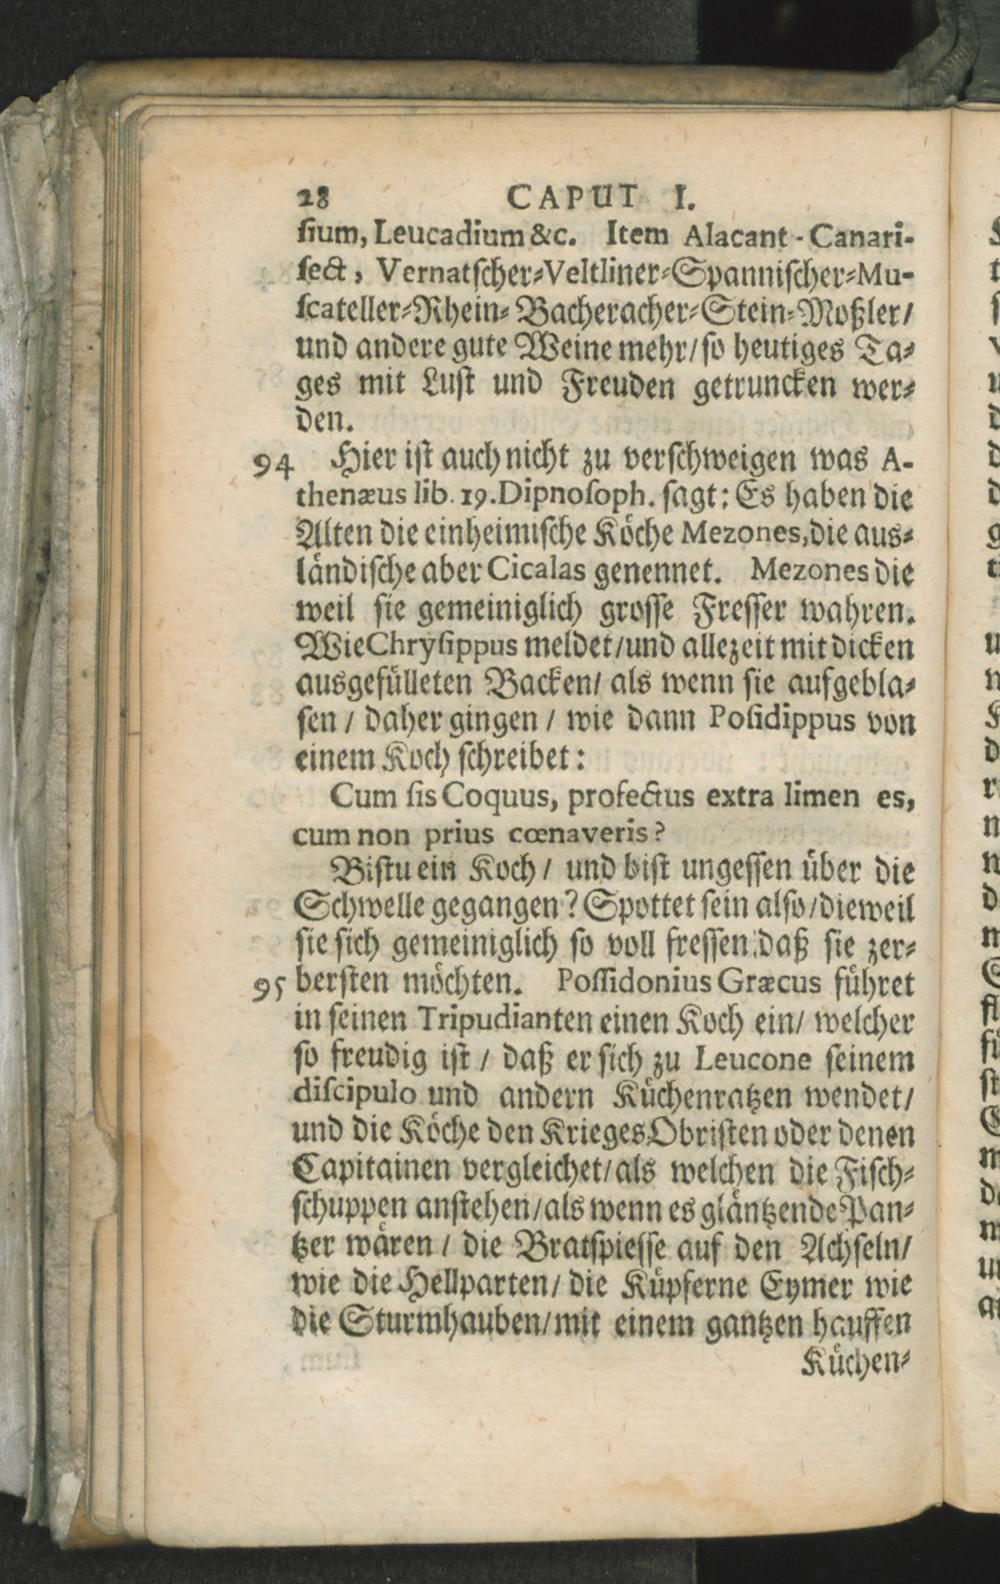 28 CAPUT I.
sium, Leucadium &c. Item Alacant - Canari-
sect, Vernatscher-Veltliner-Spannischer-Mu-
scateller-Rhein- Bacheracher-Stein-Moßler/
und andere gute Weine mehr/ so heutiges Ta-
ges mit Lust und Freuden getruncken wer-
den.
94 Hier ist auch nicht zu verschweigen was A-
thenæus lib. 19. Dipnosoph. sagt: Es haben die
Alten die einheimische Köche Mezones, die aus-
ländische aber Cicalas genennet. Mezones die
weil sie gemeiniglich grosse Fresser wahren.
Wie Chrysippus meldet/ und allezeit mit dicken
ausgefülleten Backen/ als wenn sie aufgebla-
sen / daher gingen / wie dann Posidippus von
einem Koch schreibet:
Cum sis Coquus, profectus extra limen es,
cum non prius cœnaveris?
Bistu ein Koch / und bist ungessen über die
Schwelle gegangen? Spottet sein also/ dieweil
sie sich gemeiniglich so voll fressen: daß sie zer-
95 bersten möchten. Possidonius Græcus führet
in seinen Tripudianten einen Koch ein/ welcher
so freudig ist / daß er sich zu Leucone seinem
discipulo und andern Küchenratzen wendet/
und die Köche den Krieges Obristen oder denen
Capitainen vergleichet/ als welchen die Fisch-
schuppen anstehen/ als wenn es gläntzende Pan-
tzer wären / die Bratspiesse auf den Achseln/
wie die Hellparten/ die Küpferne Eymer wie
die Sturmhauben/ mit einem gantzen hauffen
Küchen-